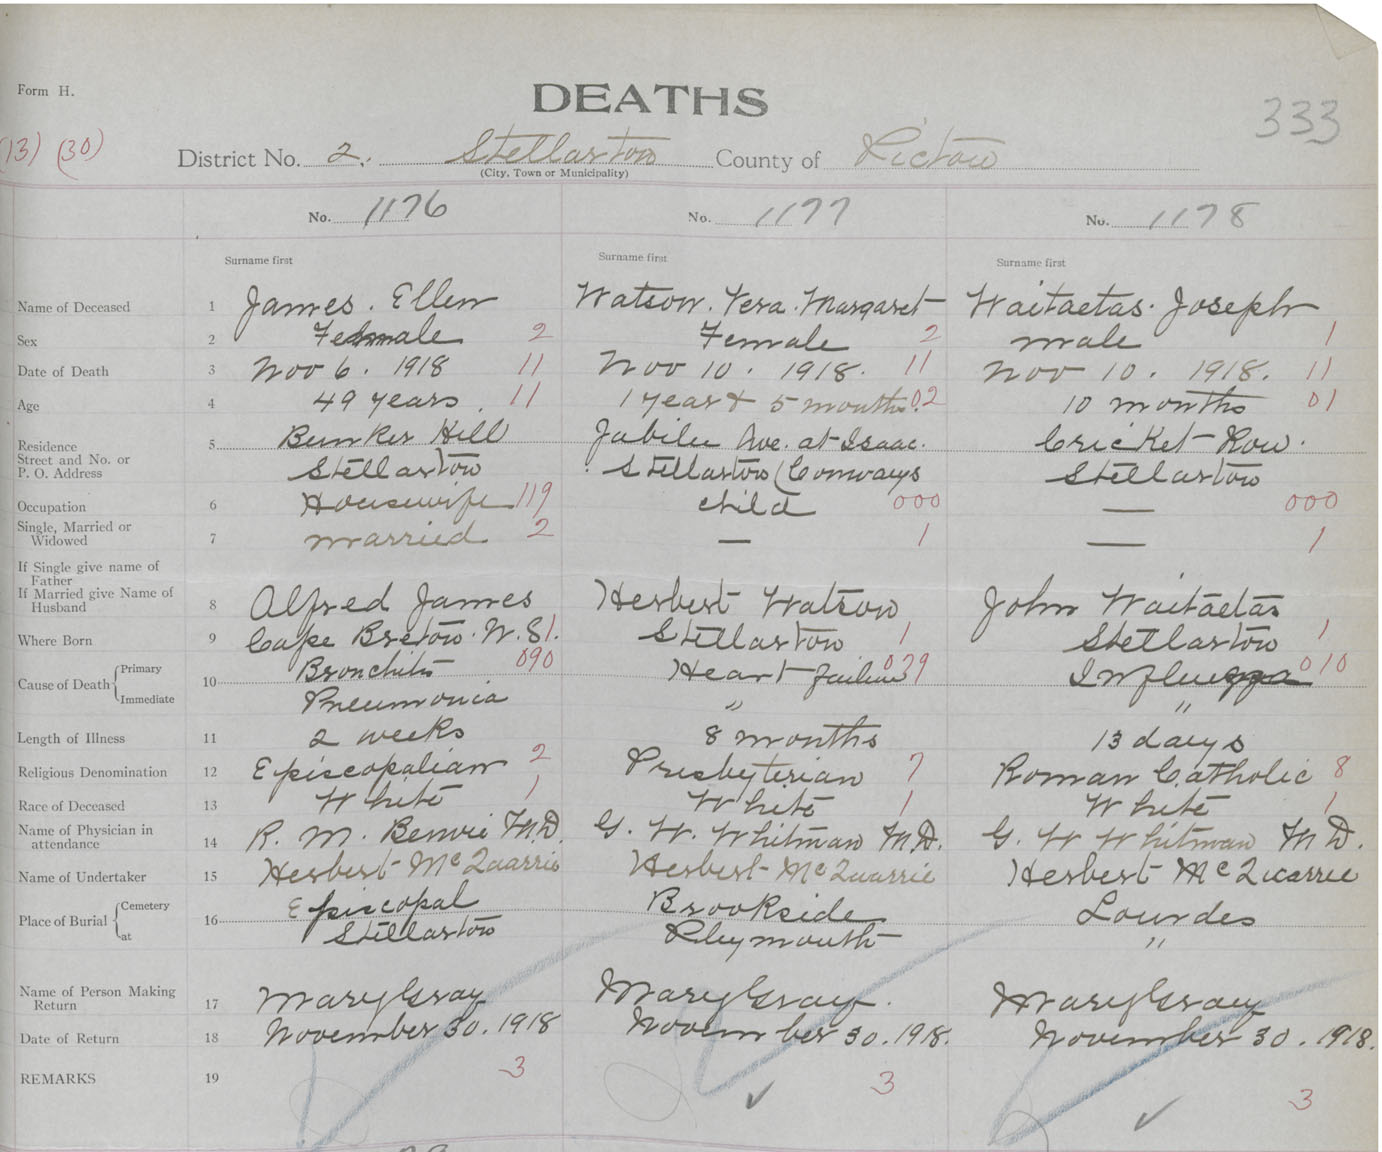 Form H.
DEATHS
333
(13) (30)
District No. 2. Stellarton County of Pictou
(City, Town or Municipality)
No. 1176 No. 1177 No. 1178
Surname first Surname first Surname first
Name of Deceased 1 James. Ellen Watson. Vera. Margaret Waitaetas. Joseph
Sex 2 Female 2 Female 2 male 1
Date of Death 3 Nov 6. 1918 11 Nov 10. 1918. 11 Nov 10. 1918. 11
Age 4 49 years. 11 1 year & 5 months. 02 10 months 01
Residence 5 Bunker Hill Jubilee Ave. at Isaac. Cricket Row.
Street and No. or
P. O. Address Stellarton Stellarton (Conways Stellarton
Occupation 6 Housewife 119 child 000 — 000
Single, Married or
Widowed 7 married 2 — 1 — 1
If Single give name of
Father
If Married give Name of
Husband 8 Alfred James Herbert Watson John Waitaetas
Where Born 9 Cape Breton. N.S. 1. Stellarton 1 Stellarton 1
Cause of Death { Primary 10 Bronchitis 090 Heart failure 079 Influenza 010
Immediate Pneumonia " "
Length of Illness 11 2 weeks 8 months 13 days
Religious Denomination 12 Episcopalian 2 Presbyterian 7 Roman Catholic 8
Race of Deceased 13 White 1 White 1 White 1
Name of Physician in
attendance 14 R. M. Benvie M.D. G. W. Whitman M.D. G. W Whitman M D.
Name of Undertaker 15 Herbert McQuarrie Herbert McQuarrie Herbert McQuarrie
Place of Burial { Cemetery 16 Episcopal Brookside Lourdes
at Stellarton Plymouth "
Name of Person Making
Return 17 Mary Gray Mary Gray. Mary Gray
Date of Return 18 November 30. 1918 November 30. 1918. November 30. 1918.
REMARKS 19 3 3 3